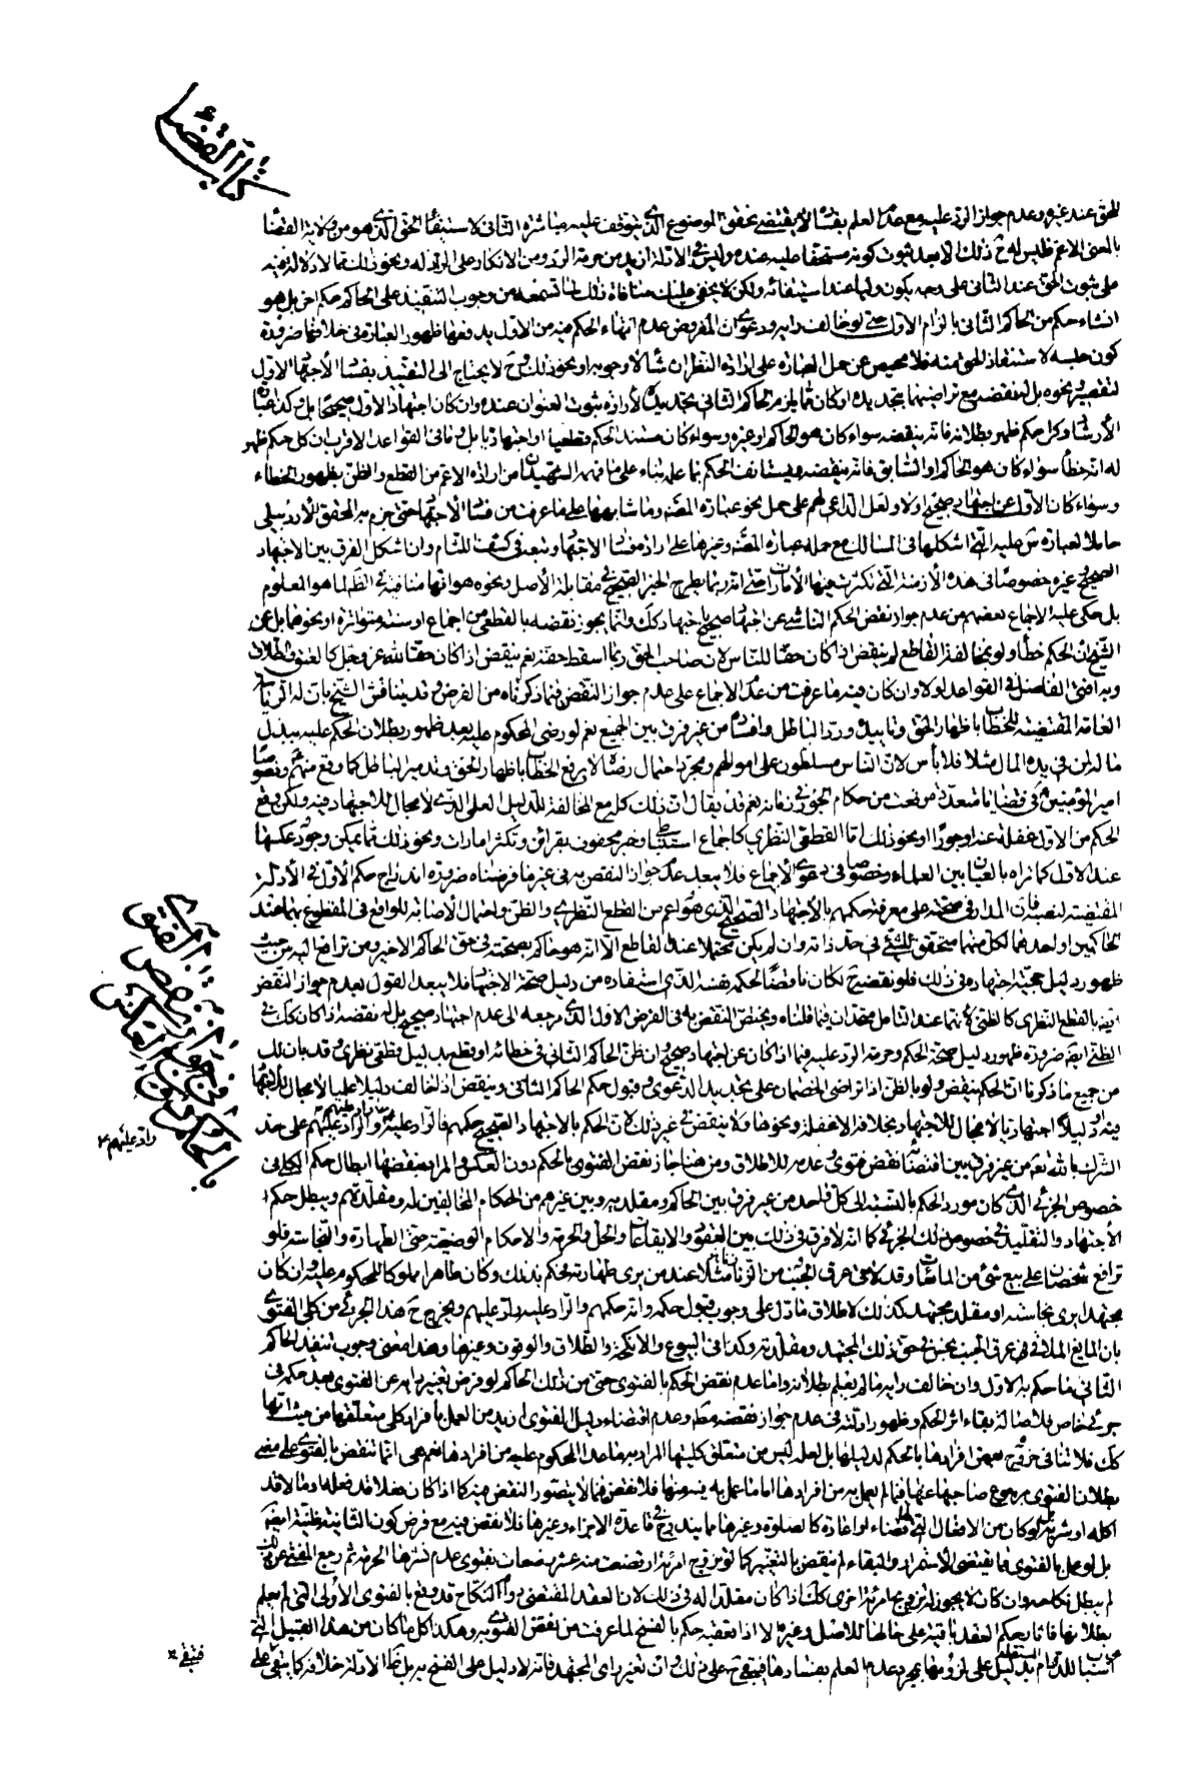 كتاب القضاء
للحق عند غيره وعدم جواز الرد عليه مع عدم العلم بفساده لا يقتضي تحقق الموضوع الذي يتوقف عليه مباشرة الثاني لاستيفاء الحق الذي هو من ولاية القضاء
بالمعنى الاعم فليس له ح ذلك الا بعد ثبوت كونه مستحقا عليه عنده وليس في الادلة ازيد من حرمة الرد ومن الانكار على الراد له ونحو ذلك مما لا دلالة فيه
على ثبوت الحق عند الثاني على وجه يكون وليا عند استيفائه ولكن لا يخفى عليك منافاة ذلك لما تسمعه من وجوب التنفيذ على الحاكم حكم اخر بل هو
انشاء حكم من الحاكم الثاني بالزام الاول حتى لو خالف رايه ودعوى ان المفروض عدم انهاء الحكم فيه من الاول يدفعها ظهور العبارة في خلافها ضرورة
كون حبسه لاستنفاذ الحق منه فلا محيص عن حمل العبارة على ارادة النظر ان شاء لا وجوبه او نحو ذلك وح لا يحتاج الى التقييد بفساد الاجتهاد الاول
لتقصير ونحوه بل ينقضه مع تراضيهما بتجديده او كان مما يلزم الحاكم الثاني تجديده لارادة ثبوت العنوان عنده وان كان اجتهاد الاول صحيحا بل وكذا عبارة
الارشاد وكل حكم ظهر بطلانه فانه ينقضه سواء كان هو الحاكم او غيره وسواء كان مستند الحكم قطعيا او اجتهاديا بل وما في القواعد الاقرب ان كل حكم ظهر
له انه خطأ سواء كان هو الحاكم او السابق فانه ينقضه ويستانف الحكم بما علمه بناء على ما فهمه الشهيدان من ارادة الاعم من القطع والظن بظهور الخطاء
وسواء كان الاول عن اجتهاد صحيح او لا ولعل الداعي لهم على حمل نحو عبارة المصنف وما شابهها على ما عرفت من فساد الاجتهاد حتى جزم به المحقق الاردبيلي
حاملا لعبارة ش عليه التي اشكلها في المسالك مع حمله عبارة المصنف وغيرها على ارادة فساد الاجتهاد وتبعه في كشف اللثام وان اشكل الفرق بين الاجتهاد
الصحيح وغيره خصوصا في هذه الازمنة التي تكثرت فيها الامارات حتى انه ربما يطرح الخبر الصحيح في مقابلة الاصل ونحوه هو انها منافية في الظ لما هو المعلوم
بل حكى عليه الاجماع بعضهم من عدم جواز نقض الحكم الناشئ عن اجتهاد صحيح باجتهاد كك وانما يجوز نقضه بالقطعي من اجماع او سنة متواترة او نحوهما بل عن
الشيخ ان الحكم خطأ ولو بمخالفة القاطع لم ينقض اذا كان حقا للناس لان صاحب الحق ربما اسقط حقه نعم ينقض اذا كان حقا لله عز وجل كالعتق والطلاق
وبه افتى الفاضل في القواعد اولا وان كان فيه ما عرفت من عدم الاجماع على عدم جواز النقض فيما ذكرناه من الفرض وقد يناقش الشيخ بان له الولايات
العامة المقتضية للخطاب باظهار الحق وتاييده ورد الباطل وافساده من غير فرق بين الجميع نعم لو رضي المحكوم عليه بعد ظهور بطلان الحكم عليه ببذل
ماله لمن في يده المال مثلا فلا بأس لان الناس مسلطون على اموالهم ومجرد احتمال رضاه لا يرفع الخطاب باظهار الحق وتدمير الباطل كما وقع منهم وخصوصا
امير المؤمنين في قضايا متعددة من نحت من حكام الجور في زمانه نعم قد يقال ان ذلك كله مع المخالفة للدليل العلمي الذي لا مجال للاجتهاد فيه ولكن وقع
الحكم من الاول غفلة عنه او جورا او نحو ذلك اما القطعي النظري كاجماع استنباطي وخبر محفوف بقرائن وتكثر امارات ونحو ذلك مما يمكن وجود عكسها
عند الاول كما نراه بالعيان بين العلماء وخصوصا في دعوى الاجماع فلا يبعد عدم جواز النقض به في غير ما فرضناه ضرورة اندراج حكم الاول في الادلة
المقتضية لنصبه فان المدار في صحته على معرفة حكمهم بالاجتهاد الصحيح الذي هو اعم من القطع النظري والظن واحتمال الاصابة للواقع في المقطوع بهما عند
الحاكمين او احدهما لكل منهما متحقق للشيء في حد ذاته وان لم يكن محتملا عند القاطع الا انه هو حاكم بصحته في حق الحاكم الاخير ومن تراضى اليه من حيث
ظهور دليل حجية اجتهاده في ذلك فلو نقضه ح لكان ناقضا لحكمه نفسه الذي استفاده من دليل صحة الاجتهاد فلا يبعد القول بعدم جواز النقض
فيه بالقطع النظري كالظني فانهما عند التامل متحدان فيما قلناه ويختص النقض به في الفرض الاول الذي مرجعه الى عدم اجتهاد صحيح بل له نقضه اذا كان كك في
الظني ايضا ضرورة ظهور دليل صحة الحكم وحرمة الرد عليه فيما اذا كان عن اجتهاد صحيح وان ظن الحاكم الثاني في خطائه او قطع بدليل قطعي نظري وقد بان لك
من جميع ما ذكرنا ان الحكم ينقض ولو بالظن اذا تراضى الخصمان على تجديد الدعوى وقبول حكم الحاكم الثاني وينقض اذا خالف دليلا علميا لا مجال للاجتهاد
فيه او دليلا اجتهاديا لا مجال للاجتهاد بخلافه الا غفلة ونحوها ولا ينقض في غير ذلك لان الحكم بالاجتهاد الصحيح حكمهم فالراد عليه راد عليهم والراد عليهم على حد
الشرك بالله نعم من غير فرق بين اقتضائه نقض فتوى وعدمه للاطلاق ومن هنا جاز نقض الفتوى بالحكم دون العكس والمراد بنقضها ابطال حكم الكلي في
خصوص الجزئي الذي كان مورد الحكم بالنسبة الى كل واحد من غير فرق بين الحاكم ومقلديه وبين غيرهم من الحكام المخالفين له ومقلدتهم ويبطل حكم
الاجتهاد والتقليد في خصوص ذلك الجزئي كما انه لا فرق في ذلك بين العقود والايقاعات والحل والحرمة والاحكام الوضعية حتى الطهارة والنجاسة فلو
ترافع شخصان على بيع شئ من المائعات وقد لاقى عرق الجنب من الزنا مثلا عند من يرى طهارته فحكم بذلك وكان طاهرا مملوكا للمحكوم عليه وان كان
مجتهدا يرى نجاسته او مقلد مجتهد كذلك لاطلاق ما دل على وجوب قبول حكمه وانه حكمهم والراد عليه راد عليهم ويخرج ح هذا الجزئي من كلي الفتوى
بان المايع الملاقى عرق الجنب نجس في حق ذلك المجتهد ومقلدته وكذا في البيوع والانكحة والطلاق والوقوف وغيرها وهذا معنى وجوب تنفيذ الحاكم
الثاني ما حكم به الاول وان خالف رايه ما لم يعلم بطلانه واما عدم نقض الحكم بالفتوى حتى من ذلك الحاكم لو فرض تغير رايه عن الفتوى بعد حكمه في
جزئي خاص فلاصالة بقاء اثر الحكم وظهور ادلته في عدم جواز نقضه مط وعدم اقتضاء دليل الفتوى ازيد من العمل بافراد كلي متعلقها من حيث انها
كك فلا تنافي خروج بعض افرادها بالحكم لدليلها بل لعله ليس من متعلق كليتها المراد به ما عدا المحكوم عليه من افرادها نعم هي انما تنقض بالفتوى على معنى
بطلان الفتوى برجوع صاحبها عنها فيما لم يعمل به من افرادها اما ما عمل به فيه منها فلا نقض فيما لا يتصور النقض فيه كما اذا كان فعلا قد فعله او مالا قد
اكله او شربه بل لو كان من الافعال التي لها قضاء او اعادة كالصلوة وغيرها مما يندرج في قاعدة الاجزاء وغيرها فلا نقض فيه مع فرض كون الثانية ظنية ايضا
بل لو عمل بالفتوى فيما يقتضي الاستمرار والبقاء لم ينقض بالتغير كما لو تزوج امرأة ارتضعت منه عشر رضعات بفتوى عدم نشرها الحرمة ثم رجع المفتي عن ذلك
لم يبطل نكاحه وان كان لا يجوز له تزويج امرأة اخرى كك اذا كان مقلدا له في ذلك لان العقد المقتضي دوام النكاح قد وقع بالفتوى الاولى التي لم يعلم
بطلانها فاثار حكم العقد باقية على حالها للاصل وغيره لا اذا تعقبه حكم بالفسخ لما عرفت من نقض الفتوى به وهكذا كل ما كان من هذا القبيل التي
اسبابا للدوام بدليل على لزومها بمجرد عدم العلم بفسادها فيبقى ح على ذلك وان تغير راي المجتهد فانه لا دليل على الفسخ به بل ظاهر الادلة خلافه كما ينبغي على
في جواز نقض الفتوى بالحكم دون العكس
راد عليهم
فيبقى